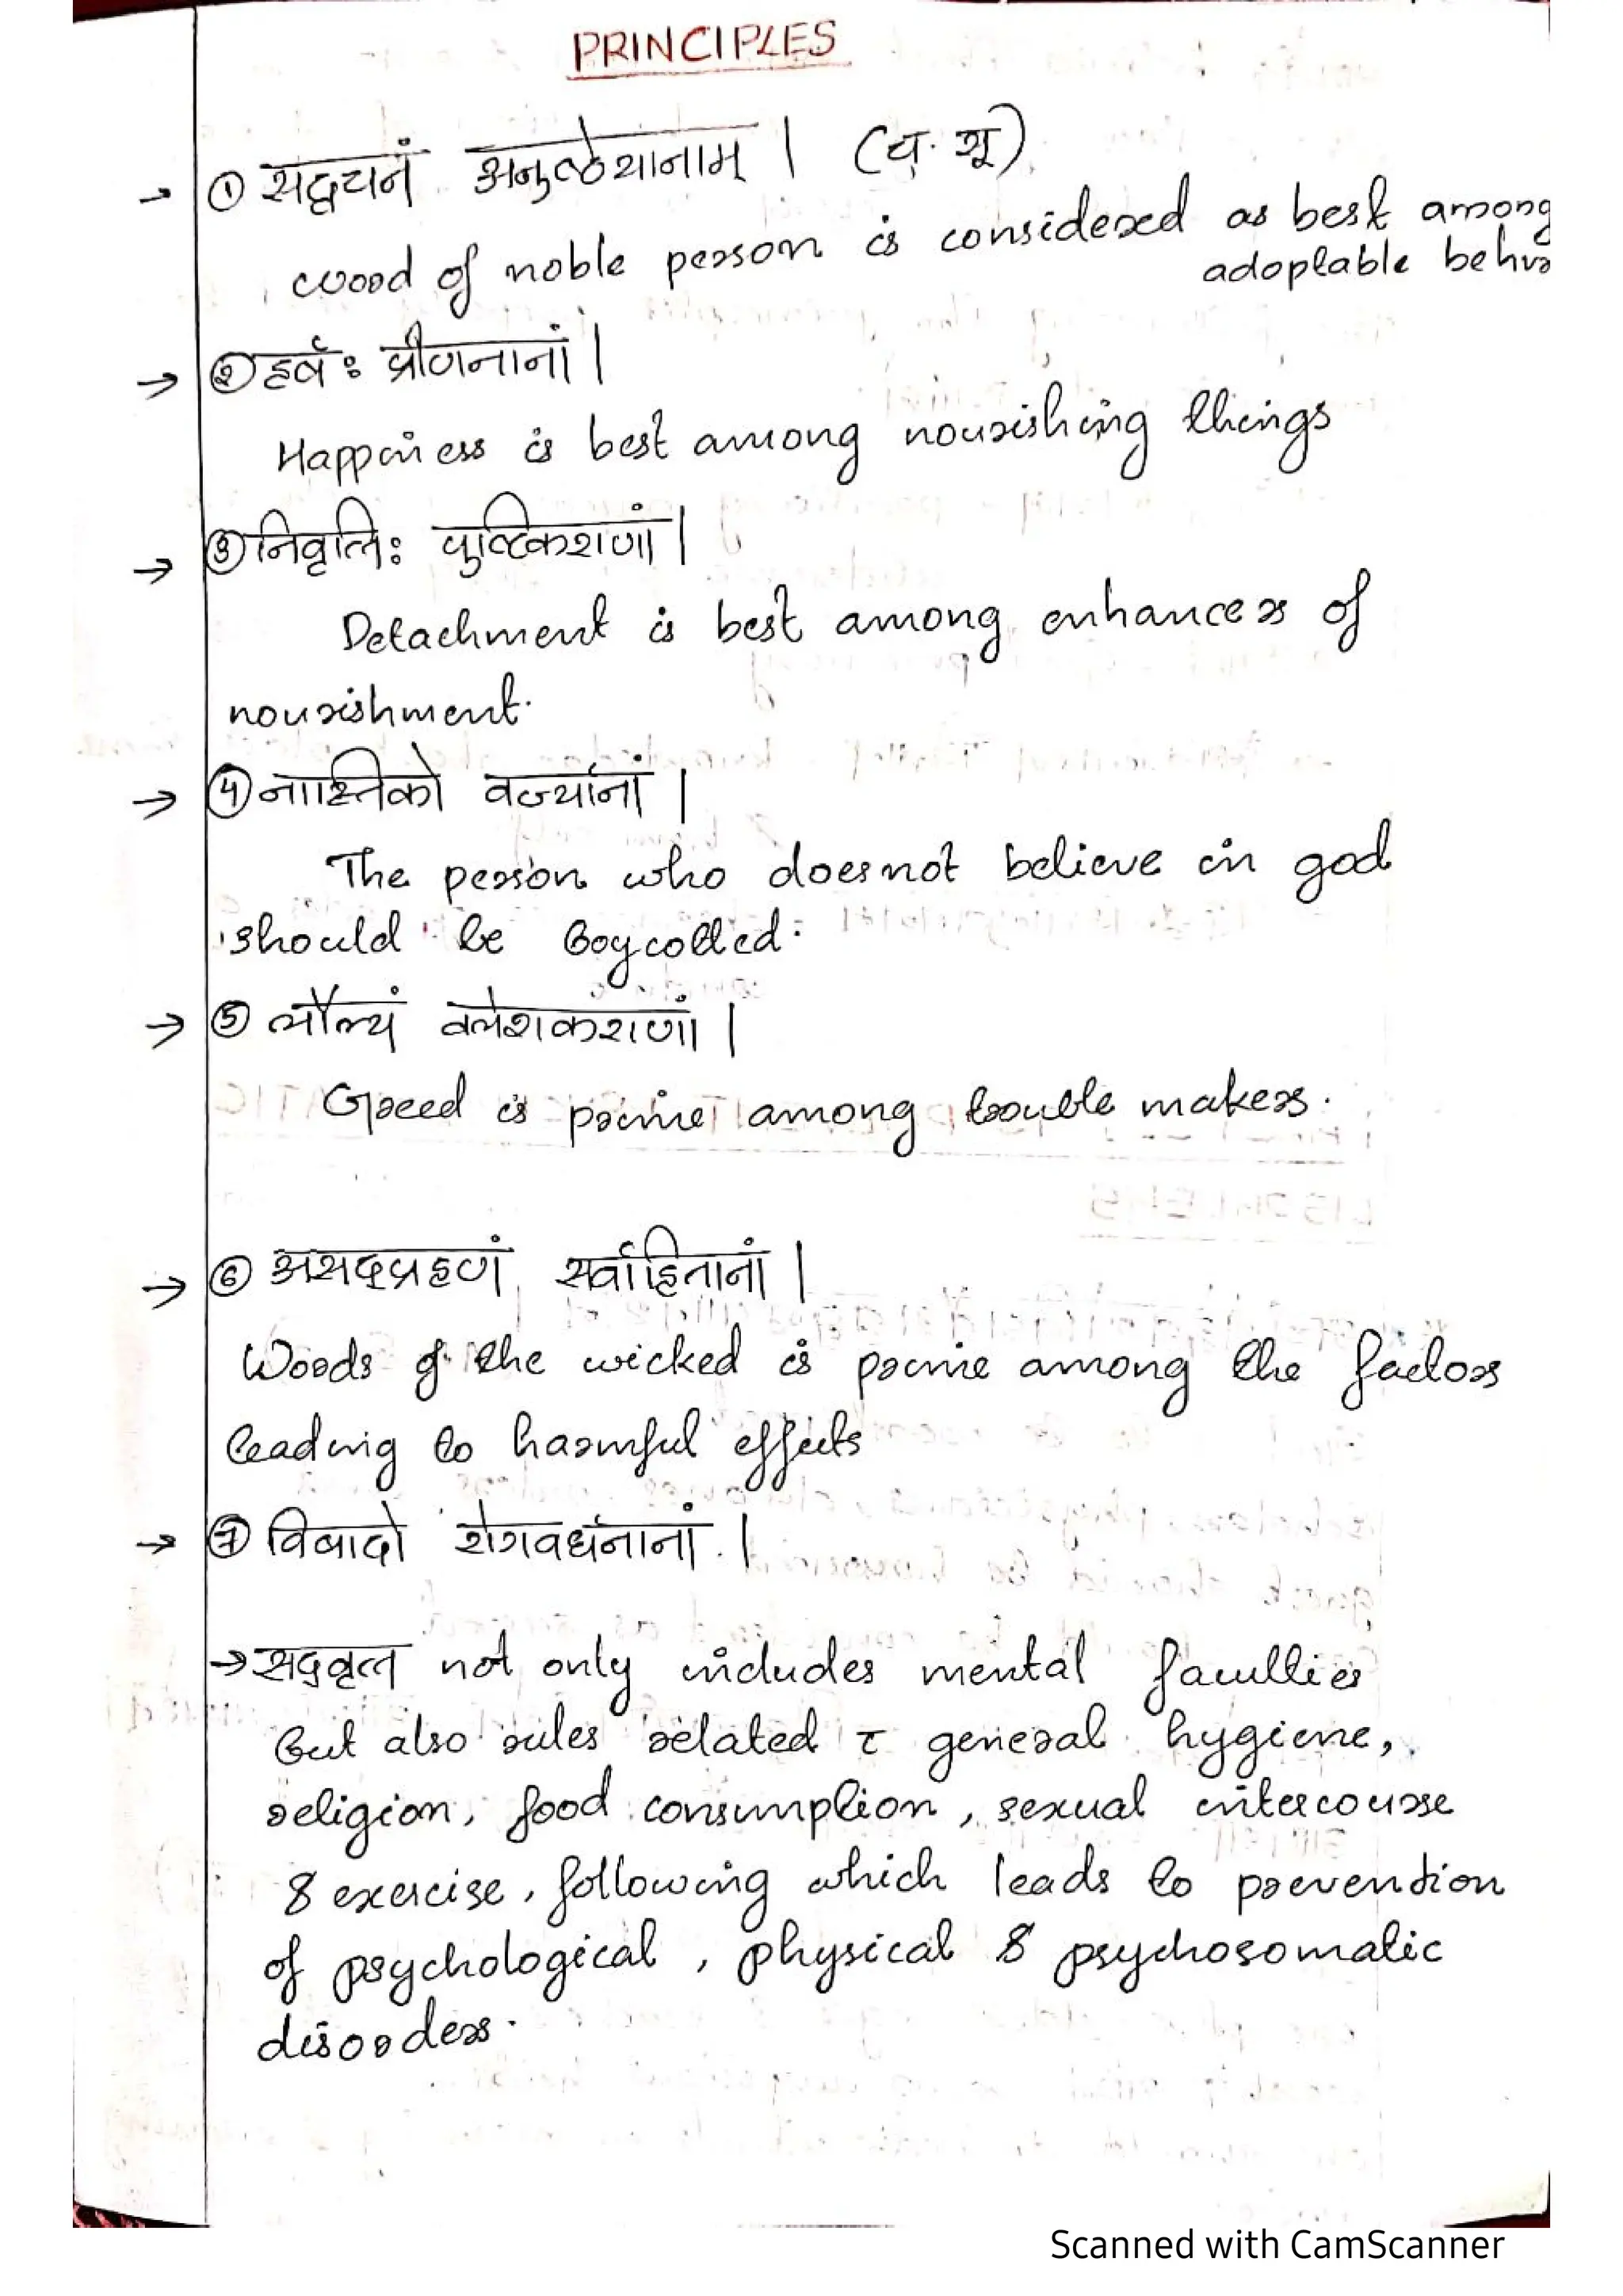 PRINCIPLES
→ ① सद्वचनं अनुष्ठेयानाम् | (च. सू)
word of noble person is considered as best among
adoptable behvr
→ ② हर्षः प्रीणनानां |
Happiness is best among nourishing things
→ ③ निवृत्तिः पुष्टिकराणां |
Detachment is best among enhancers of
nourishment.
→ ④ नास्तिको वर्ज्यानां |
The person who doesnot believe in god
should be Boycotted.
→ ⑤ लौल्यं क्लेशकराणां |
Greed is prime among trouble makers.
→ ⑥ असद्ग्रहणं सर्वाहितानां |
Words of the wicked is prime among the factors
leading to harmful effects
→ ⑦ विवादो रोगवर्धनानां |
→ सद्वृत्त not only includes mental faculties
But also rules related c̄ general hygiene,
religion, food consumption, sexual intercourse
& exercise, following which leads to prevention
of psychological, physical & psychosomatic
disorders.
Scanned with CamScanner